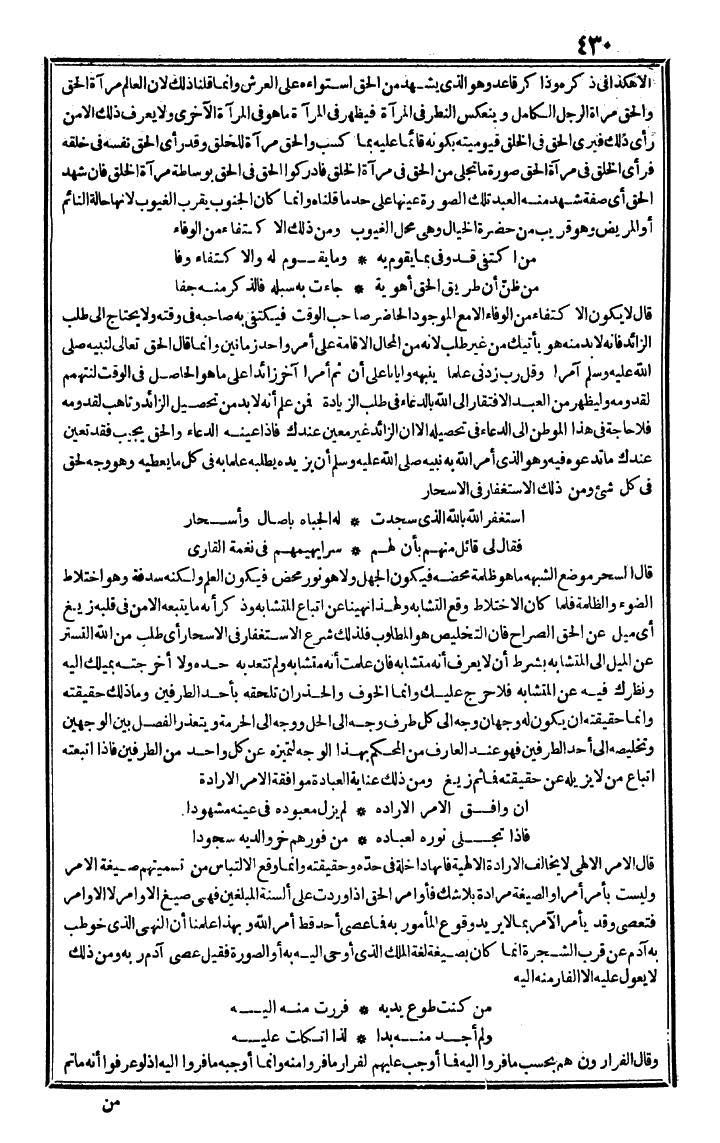 ٤٣٠
الا هكذا فى ذكره وذا كرقاعد وهو الذى يشهد من الحق استواءه على العرش وانما قلنا ذلك لان العالم مرآة الحق
والحق مرآة الرجل الكامل وينعكس النظر فى المرآة فيظهر فى المرآة ما هو فى المرآة الأخرى ولا يعرف ذلك الا من
رأى ذلك فيرى الحق فى الخلق قيوميته بكونه قائما عليه بما كسب والحق مرآة للخلق وقد رأى الحق نفسه فى خلقه
فرأى الخلق فى مرآة الحق صورة ما تجلى من الحق فى مرآة الخلق فادركوا الحق فى الحق بوساطة مرآة الخلق فان شهد
الحق أى صفة شهد منه العبد تلك الصورة عينها على حد ما قلناه وانما كان الجنوب بقرب الغيوب لانها حالة النائم
أو المريض وهو قريب من حضرة الخيال وهى محل الغيوب ومن ذلك الاكتفاء من الوفاء
من اكتفى قد وفى بما يقوم به * وما يقوم له والا كتفاء وفا
من ظنّ أن طريق الحق أهوية * جاءت به سبله فالذكر منه جفا
قال لا يكون الاكتفاء من الوفاء الامع الموجود الحاضر صاحب الوقت فيكتفى به صاحبه فى وقته ولا يحتاج الى طلب
الزائد فانه لا بد منه هو يأتيك من غير طلب لانه من المحال الاقامة على أمر واحد زمانين وانما قال الحق تعالى لنبيه صلى
الله عليه وسلم آمرا وقل رب زدنى علما ينبهه وايانا على أن ثم أمرا آخر زائدا على ما هو الحاصل فى الوقت لنتهمم
لقدومه وليظهر من العبد الافتقار الى الله بالدعاء فى طلب الزيادة فمن علم أنه لا بد من تحصيل الزائد وتاهب لقدومه
فلا حاجة فى هذا الموطن الى الدعاء فى تحصيله الا ان الزائد غير معين عندك فاذا عينه الدعاء والحق يجيب فقد تعين
عندك ما تدعوه فيه وهو الذى أمر الله به نبيه صلى الله عليه وسلم أن يزيده بطلبه علما به فى كل ما يعطيه وهو وجه لحق
فى كل شئ ومن ذلك الاستغفار فى الاسحار
استغفر الله بالله الذى سجدت * له الجباه باصال وأسحار
فقال لى قائل منهم بأن لهم * سرا بهيمهم فى نغمة القارى
قال السحر موضع الشبهه ما هو ظلمة محضه فيكون الجهل ولا هو نور محض فيكون العلم ولكنه سدفة وهو اختلاط
الضوء والظلمة فلما كان الاختلاط وقع التشابه ولهذا نهينا عن اتباع المتشابه وذكر أنه ما يتبعه الا من فى قلبه زيغ
أى ميل عن الحق الصراح فان التخليص هو المطلوب فلذلك شرع الاستغفار فى الاسحار أى طلب من الله التستر
عن الميل الى المتشابه بشرط أن لا يعرف أنه متشابه فان علمت أنه متشابه ولم تتعد به حده ولا أخرجته بميلك اليه
ونظرك فيه عن المتشابه فلا حرج عليك وانما الخوف والحذر ان تلحقه بأحد الطرفين وما ذلك حقيقته
وانما حقيقته ان يكون له وجهان وجه الى كل طرف وجه الى الحل ووجه الى الحرمة ويتعذر الفصل بين الوجهين
وتخليصه الى أحد الطرفين فهو عند العارف من المحكم بهذا الوجه لتميزه عن كل واحد من الطرفين فاذا اتبعته
اتباع من لا يزيله عن حقيقته فما ثم زيغ ومن ذلك عناية العبادة موافقة الامر الارادة
ان وافق الامر الاراده * لم يزل معبوده فى عينه مشهودا
فاذا تجلى نوره لعباده * من فورهم خروا لديه سجودا
قال الامر الالهى لا يخالف الارادة الالهية فانها داخلة فى حده وحقيقته وانما وقع الالتباس من تسميتهم صيغة الامر
وليست بأمر أمرا والصيغة مرادة بلا شك فأوامر الحق اذا وردت على ألسنة المبلغين فهى صيغ الاوامر لا الاوامر
فتعصى وقد يأمر الآمر بما لا يريد وقوع المأمور به فما عصى أحد قط أمر الله وبهذا علمنا أن النهى الذى خوطب
به آدم عن قرب الشجرة انما كان بصيغة لغة الملك الذى أوحى اليه به أو الصورة فقيل عصى آدم ربه ومن ذلك
لا يعول عليه الا الفار منه اليه
من كنت طوع يديه * فررت منه اليه
ولم أجد منه بدا * لذا اتكلت عليه
وقال الفرارون هم بحسب ما فروا اليه فما أوجب عليهم لفرار ما فروا منه وانما أوجبه ما فروا اليه اذ لو عرفوا أنه ما ثم
من